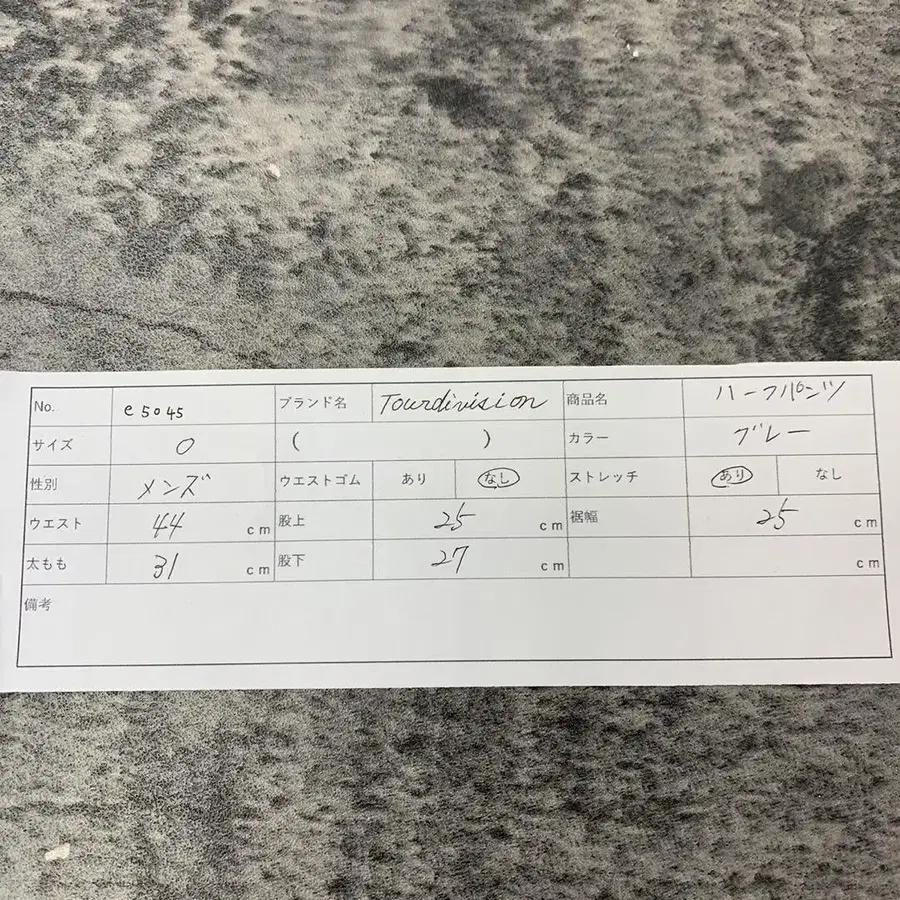 No. e5045 ブランド名 Tourdivision 商品名 ハーフパンツ
サイズ 0 ( ) カラー グレー
性別 メンズ ウエストゴム あり なし ストレッチ あり なし
ウエスト 44 cm 股上 25 cm 裾幅 25 cm
太もも 31 cm 股下 27 cm cm
備考